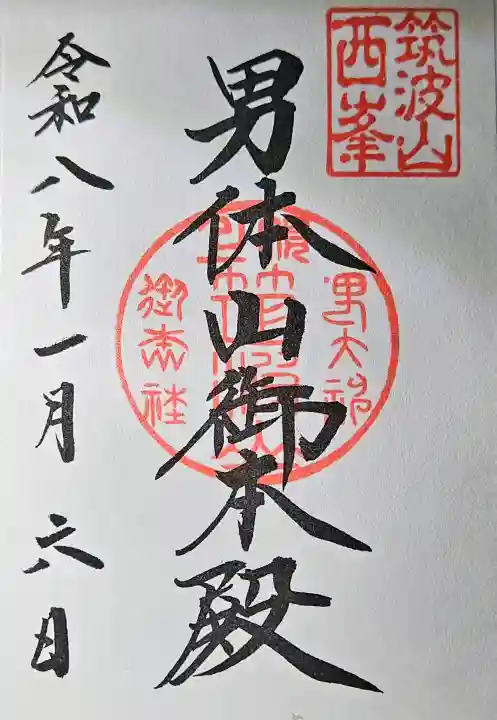 筑波山
西峯
男体山御本殿
令和八年一月六日
御本社